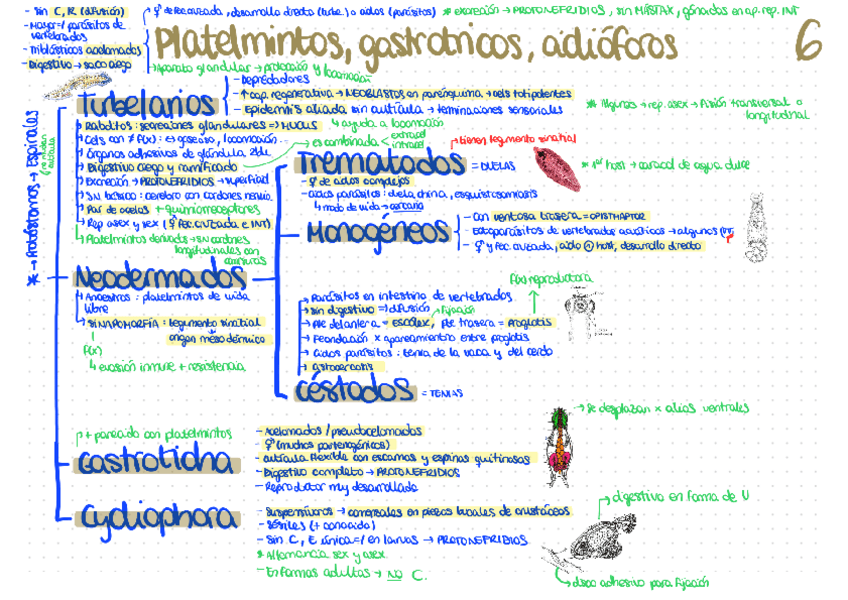 - Sin C, R (difusión)
- Mayor=/ parásitos de vertebrados
- Triblásticos acelomados
- Digestivo → saco ciego
⚥ Fec. cruzada, desarrollo directo (turbe.) o ciclos (parásitos)
* excreción → PROTONEFRIDIOS, sin MÁSTAX, gónadas en ap. rep. INT
Platelmintos, gastrotricos, ciclióforos
6
Aparato glandular → protección y locomoción
* → Protóstomos → Espirales
Turbelarios
- Depredadores
- ↑ cap. regenerativa → NEOBLASTOS en parénquima → cels totipotentes
- Epidermis ciliada sin cutícula → terminaciones sensoriales
* Algunos → rep. asex → Fisión transversal o longitudinal
↳ Rabditos: secreciones glandulares => MUCUS
↳ ayuda a locomoción
↳ Cels con ≠ f(x): esqueleto, locomoción...
↳ Órganos adhesivos de glándula
↳ Digestivo ciego y ramificado
→ es combinada < extracel intracel
↳ Excreción → PROTONEFRIDIOS → superficial
↳ SN básico: cerebro con cordones nervio.
↳ Par de ocelos + quimiorreceptores
↳ Rep asex y sex (⚥ Fec. cruzada e INT)
↳ Platelmintos derivados → SN cordones longitudinales con comisuras
Trematodos = DUELAS
→ tienen tegumento sinatial
* 1er host → caracol de agua dulce
- ⚥ de ciclos complejos
- ciclos parásitos: duela china, esquistosomiasis
↳ modo de vida → cercaria
Monogéneos
- Con ventosa trasera = OPISTHAPTOR
- Ectoparásitos de vertebrados acuáticos → algunos inv.
- ⚥ y fec. cruzada, ciclo ① host, desarrollo directo
Neodermados
↳ Ancestros: platelmintos de vida libre
↳ SINAPOMORFÍA: tegumento sinatial
origen mesodérmico
f(x)
↳ evasión inmune + resistencia
f(x) reproductora
→ Parásitos en intestino de vertebrados
→ Sin digestivo => difusión
Fijación
→ Pte delantera = ESCÓLEX, pte trasera = Proglotis
→ Fecundación x apareamiento entre proglotis
→ Ciclos parásitos: tenia de la vaca y del cerdo
→ cisticercosis
Céstodos = TENIAS
→ + parecido con platelmintos
Gastroticha
- Acelomados / pseudocelomados
- ⚥ (muchos partenogénicos)
- cutícula flexible con escamas y espinas quitinosas
- Digestivo completo → PROTONEFRIDIOS
- Reproductor muy desarrollado
→ Se desplazan x cilios ventrales
Cycliophora
- Suspensívoros → comensales en piezas bucales de crustáceos
- Sésiles (+ conocido)
- Sin C, E única=/ en larvas → PROTONEFRIDIOS
* Alternancia sex y asex.
- En formas adultas → NO C.
→ digestivo en forma de U
→ disco adhesivo para fijación